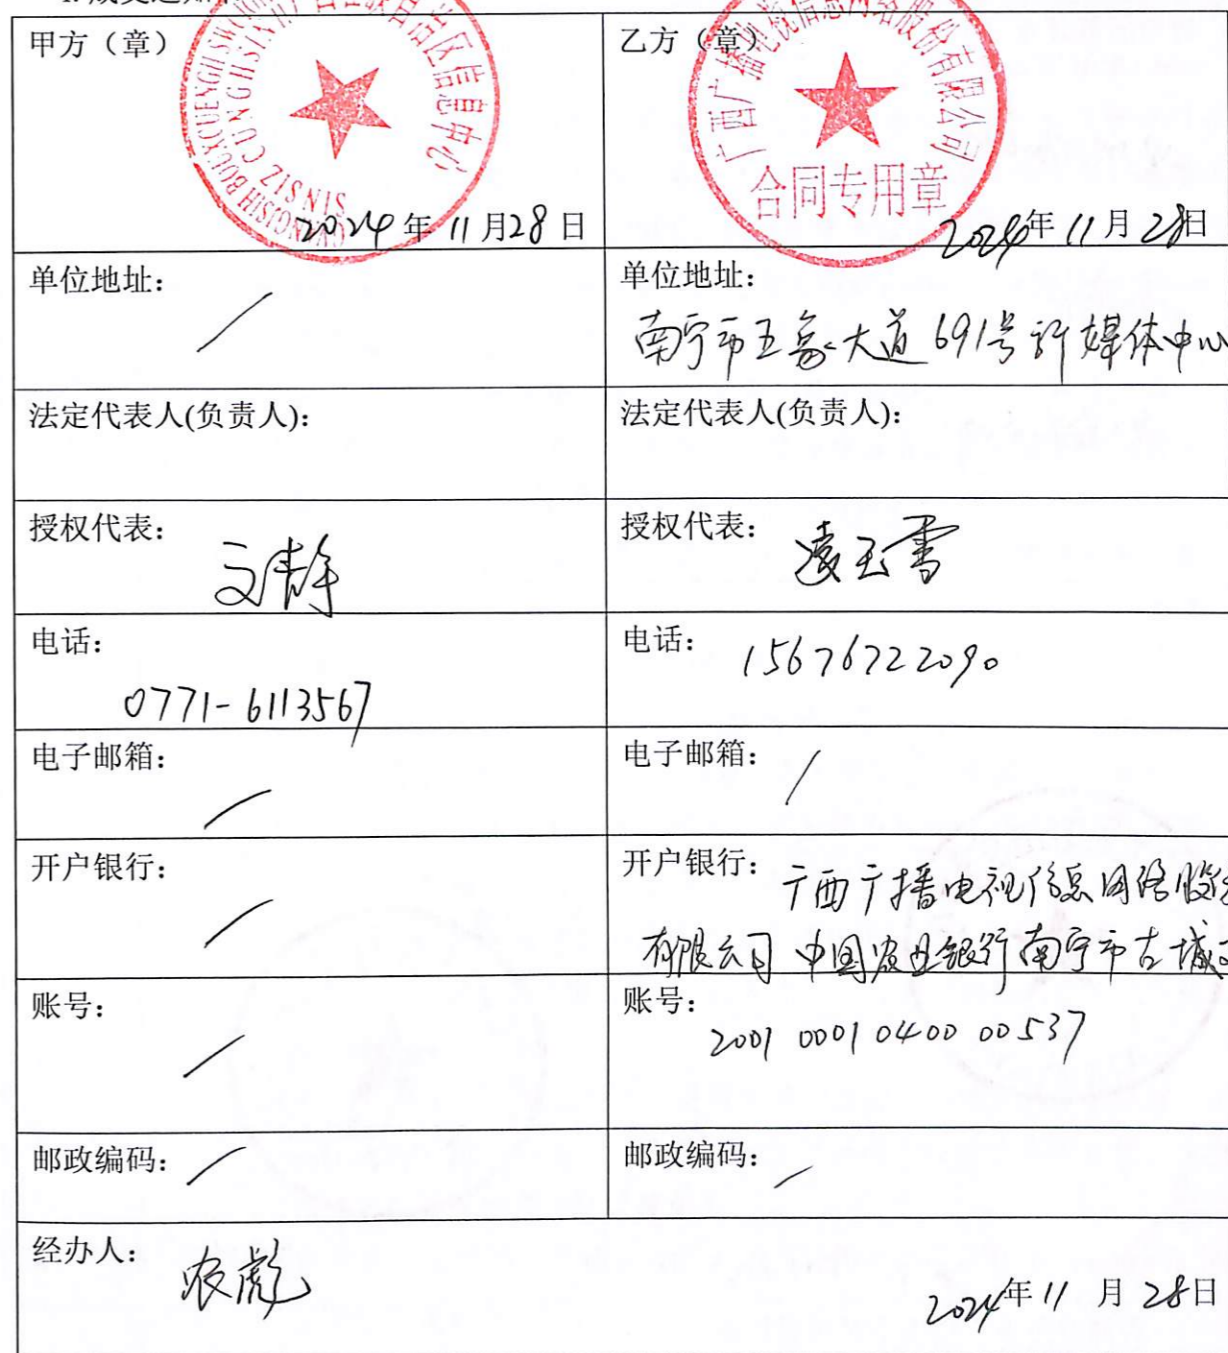 甲方（章）
广西壮族自治区信息中心
SINSIZ CUNGHSINH
2024年11月28日
乙方（章）
广西广播电视信息网络股份有限公司
合同专用章
2024年11月28日
单位地址：
/
单位地址：
南宁市五象大道691号新媒体中心
法定代表人(负责人)：
法定代表人(负责人)：
授权代表：
文静
授权代表：
凌玉雪
电话：
0771-6113567
电话：
15676722090
电子邮箱：
/
电子邮箱：
/
开户银行：
/
开户银行：广西广播电视信息网络股份
有限公司 中国农业银行南宁市古城
账号：
/
账号：
2001 0001 0400 00537
邮政编码：/
邮政编码：/
经办人：
农彪
2024年11月28日